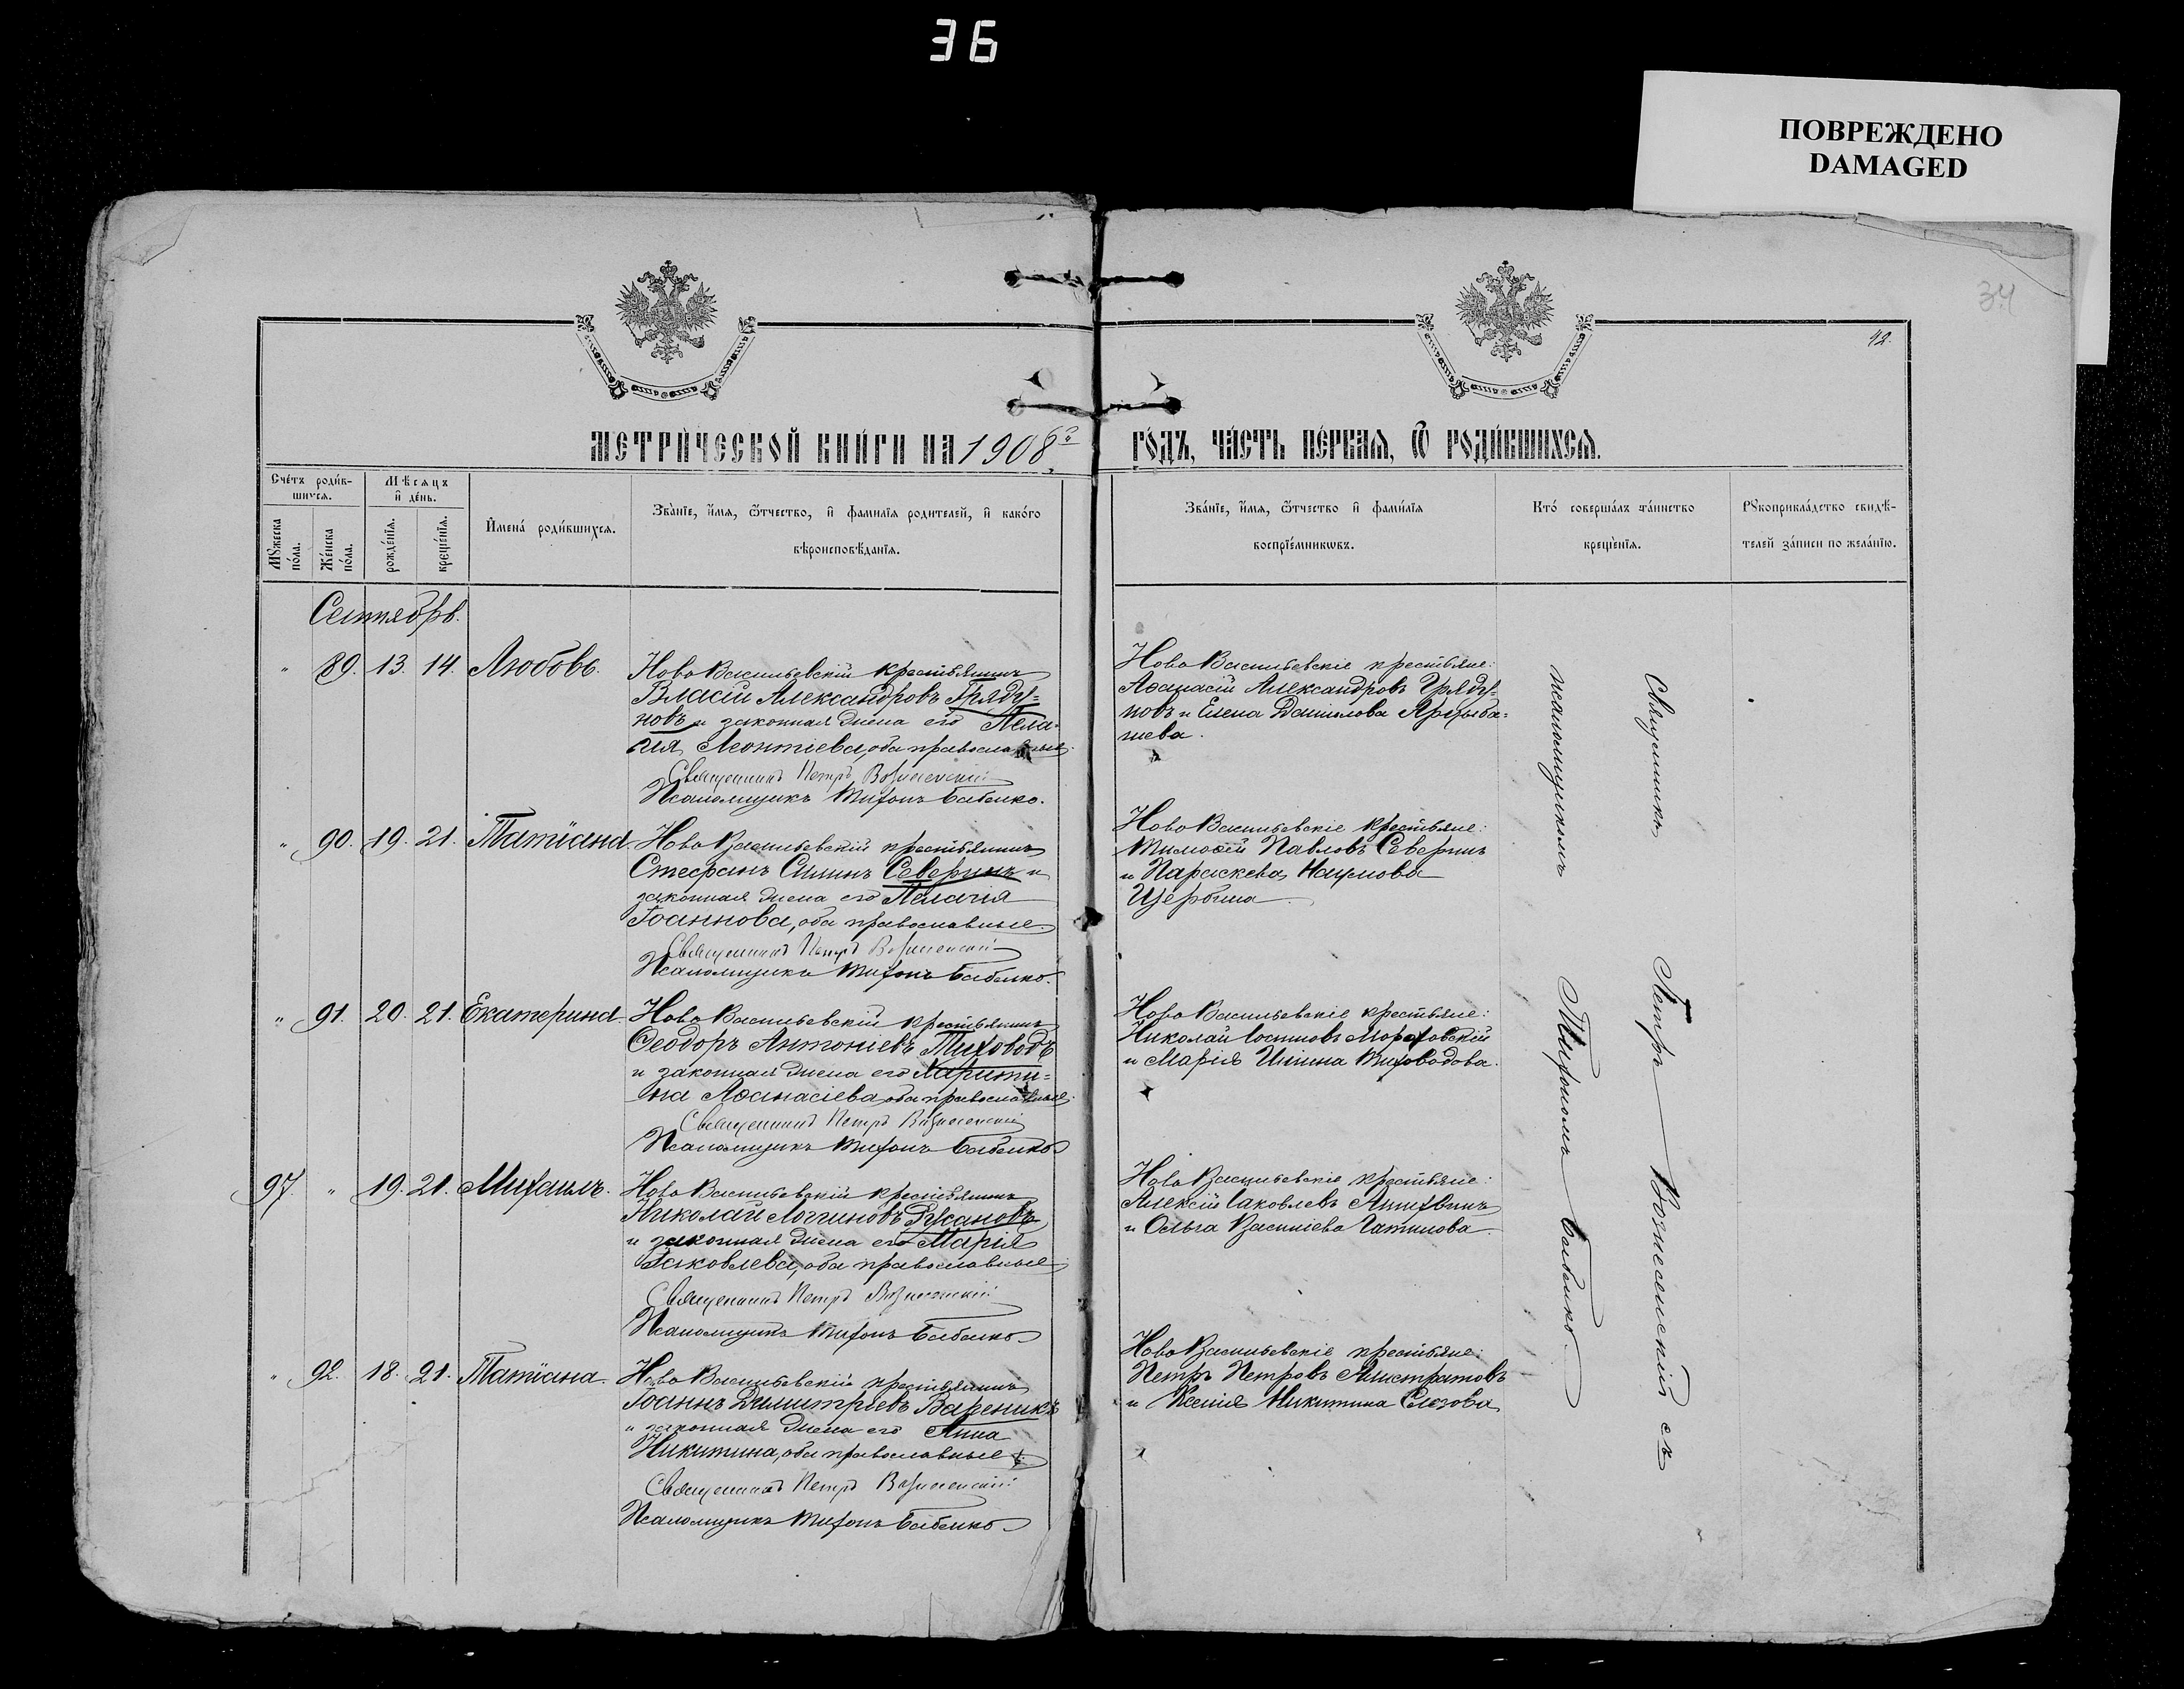 36
ПОВРЕЖДЕНО
DAMAGED
34
42.
МЕТРИ́ЧЕСКОЙ КНИ́ГИ НА 1908й ГО́ДЪ, ЧА́СТЬ ПЕ́РВАѦ, Ѿ РОДИ́ВШИХСѦ.
Сче́тъ роди́в-
шихся.
Мѣ́сяцъ
и҆ де́нь.
Мꙋ́жеска
по́ла.
Же́нска
по́ла.
рожде́нїя.
креще́нїя.
И҆мена̀ роди́вшихся.
Зва́нїе, и҆́мя, ѻ҆́тчество, и҆ фами́лїя родителей, и҆ како́го
вѣроисповѣ́данїя.
Зва́нїе, и҆́мя, ѻ҆́тчество и҆ фами́лїя
воспрїе́мникѡвъ.
Кто́ соверша́лъ та́инство
креще́нїя.
Рꙋкоприкла́дство свидѣ́-
телей за́писи по жела́нїю.
Сентябрь.
" 89. 13. 14. Любовь.
Ново Васильевскій крестьянинъ
Власій Александровъ Гряду=
новъ и законная жена его Пела-
гия Леонтіева, оба православные.
Священникъ Петръ Вознесенскій
Псаломщикъ Тихонъ Бабенко.
Ново Васильевскіе крестьяне:
Аѳанасій Александровъ Гряду-
новъ и Елена Данилова
" 90. 19. 21. Татіана
Ново Васильевскій крестьянинъ
Стефанъ Силинъ Северинъ и
законная жена его Пелагія
Іоаннова, оба православные.
Священникъ Петръ Вознесенскій
Псаломщикъ Тихонъ Бабенко.
Ново Васильевскіе крестьяне:
Тимоѳей Павловъ Северинъ
и Параскева Наумова
Щербина
" 91. 20. 21. Екатерина
Ново Васильевскій крестьянинъ
Ѳеодоръ Антоніевъ Тиховодъ
и законная жена его Харити=
на Аѳанасіева, оба православные.
Священникъ Петръ Вознесенскій
Псаломщикъ Тихонъ Бабенко
Ново Васильевскіе крестьяне:
Николай Іосифовъ Мораховскій
и Марія Ильина Тиховодова.
97. " 19. 21. Михаилъ.
Ново Васильевскій крестьянинъ
Николай Логгиновъ Русановъ
и законная жена его Марія
Іаковлева, оба православные
Священникъ Петръ Вознесенскій
Псаломщикъ Тихонъ Бабенко
Ново Васильевскіе крестьяне:
Алексій Іаковлевъ
и Ольга Василіева
" 92. 18. 21. Татіана.
Ново Васильевскій крестьянинъ
Іоаннъ Димитріевъ Вареникъ
и законная жена его Анна
Никитина, оба православные
Священникъ Петръ Вознесенскій
Псаломщикъ Тихонъ Бабенко
Ново Васильевскіе крестьяне:
Петръ Петровъ Алистратовъ
и Ксенія Никитина
Священникъ Петръ Вознесенскій съ
псаломщикомъ Тихономъ Бабенко.